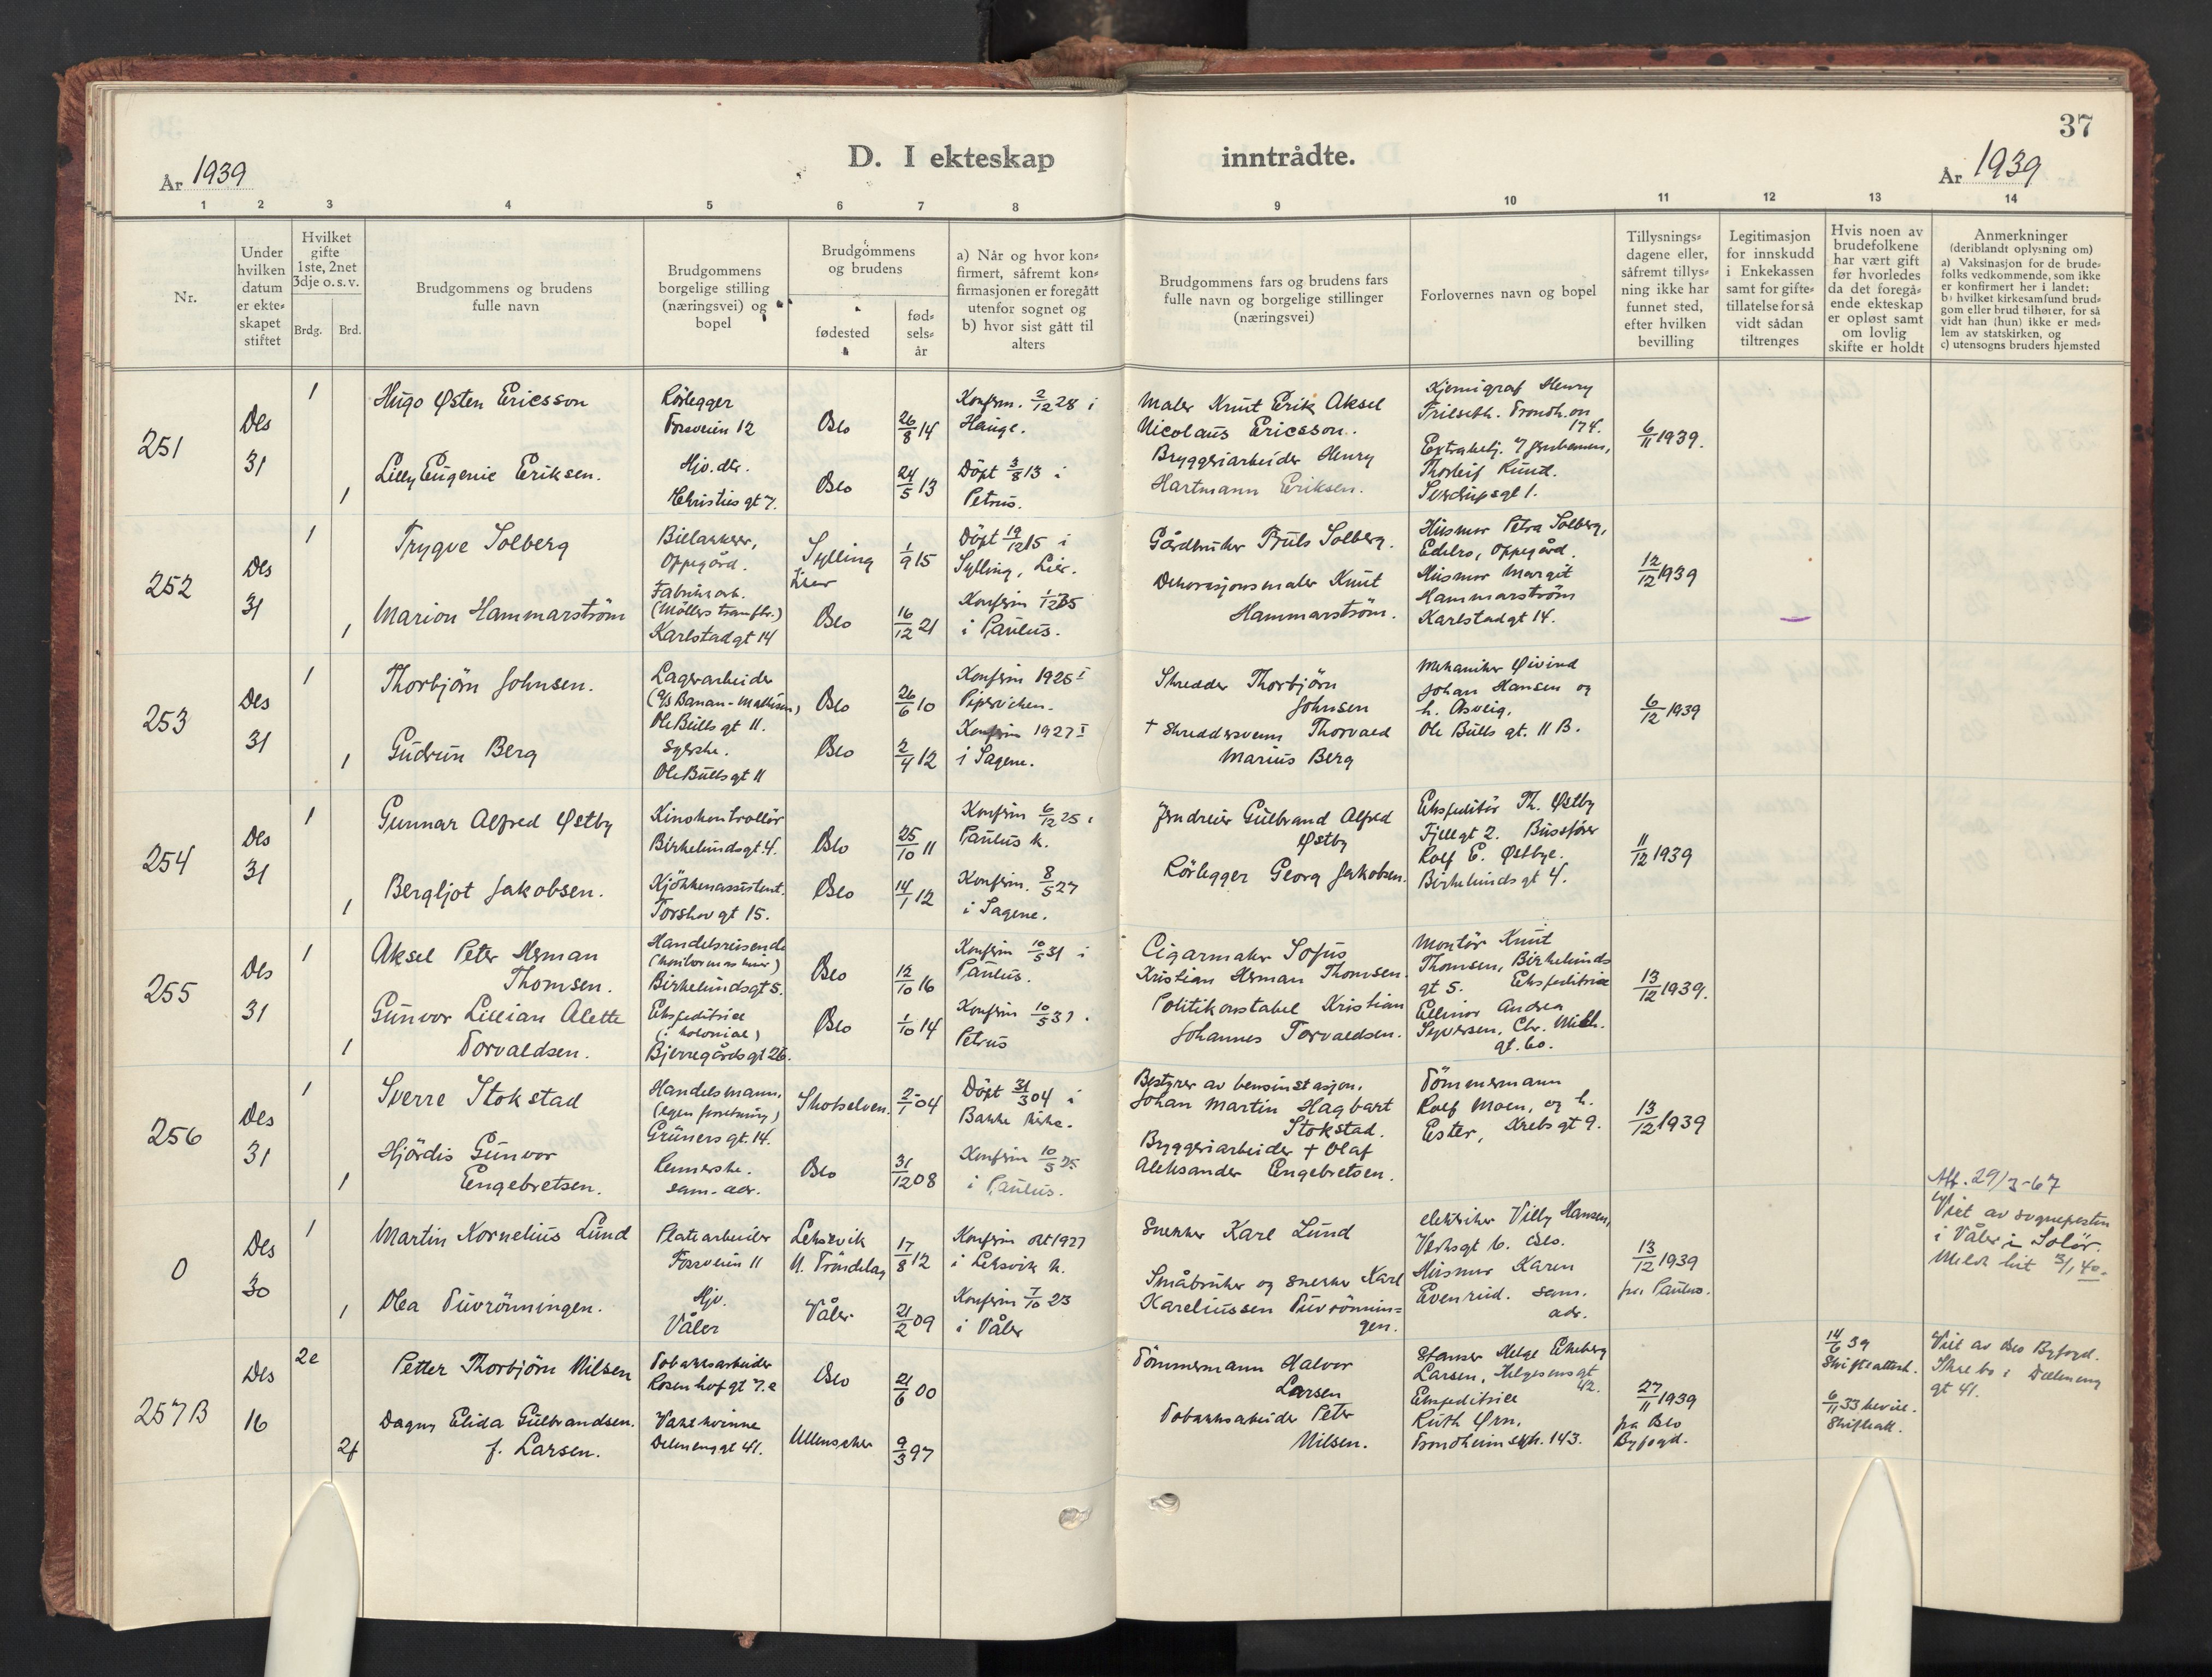 37
D. I ekteskap inntrådte.
År 1939
År 1939
1 2 3 4 5 6 7 8 9 10 11 12 13 14
Nr.
Under hvilken datum er ekte- skapet stiftet
Hvilket gifte 1ste, 2net 3dje o. s. v.
Brdg. Brd.
Brudgommens og brudens fulle navn
Brudgommens borgelige stilling (næringsvei) og bopel
Brudgommens og brudens
fødested
fød- sels- år
a) Når og hvor kon- firmert, såfremt kon- firmasjonen er foregått utenfor sognet og b) hvor sist gått til alters
Brudgommens fars og brudens fars fulle navn og borgelige stillinger (næringsvei)
Forlovernes navn og bopel
Tillysnings- dagene eller, såfremt tillys- ning ikke har funnet sted, efter hvilken bevilling
Legitimasjon for innskudd i Enkekassen samt for gifte- tillatelse for så vidt sådan tiltrenges
Hvis noen av brudefolkene har vært gift før hvorledes da det foregå- ende ekteskap er opløst samt om lovlig skifte er holdt
Anmerkninger (deriblandt oplysning om) a) Vaksinasjon for de brude- folks vedkommende, som ikke er konfirmert her i landet: b) hvilket kirkesamfund brud- gom eller brud tilhører, for så vidt han (hun) ikke er med- lem av statskirken, og c) utensogns bruders hjemsted
251 Des 31
1 Hugo Østen Ericsson
Rørlegger Forsveien 12
Oslo 26/8 14
Konfirm. 2/12 28 i Hauge.
Maler Knut Erik Aksel Nicolaus Ericsson.
Kjemigraf Henry Frilseth. Trondh.vn 174.
6/11 1939.
1 Lilly Eugenie Eriksen.
Hjv. dtr. Christies gt 7.
Oslo 24/5 13
Döpt 3/8 13 i Petrus.
Bryggeriarbeider Henry Hartmann Eriksen.
Thorleif Rund. Sverdrups gt 1.
252 Des 31
1 Trygve Solberg
Bileier, Oppegård.
Sylling Lier 1/9 15
Döpt 19/12 15 i Sylling, Lier.
Gårdbruker Truls Solberg.
Husmor Petra Solberg, Edelro, Oppegård.
12/12 1939
1 Marion Hammarström
Fabrikkarb. (Möllers tranfbr.) Karlstadgt 14
Oslo 16/12 21
Konfirm 1/12 35 i Paulus.
Dekorasjonsmaler Knut Hammarström.
Husmor Margit Hammarström Karlstadgt 14.
253 Des 31
1 Thorbjörn Johnsen.
Lagerarbeider (A/S Banan-Mathisen) Ole Bulls gt 11.
Oslo 26/6 10
Konfirm 1925 I Pipervikens.
Skredder Thorbjörn Johnsen
Mekaniker Øivind Johan Hansen og h. Asveig, Ole Bulls gt. 11 B.
6/12 1939
1 Gudrun Berg
Syerske. Ole Bulls gt 11
Oslo 2/4 12
Konfirm 1927 I i Sagene.
† Skreddersvenn Thorvald Marius Berg
254 Des 31
1 Gunnar Alfred Østby
Kinokontrollör Birkelundsgt. 4.
Oslo 25/10 11
Konfirm 6/12 25 i Paulus k.
Jerndreier Gulbrand Alfred Østby
Ekspeditör Th. Østby Fjellgt 2. Bussfører Rolf E. Østbye. Birkelunds gt 4.
11/12 1939
1 Bergljot Jakobsen.
Kjökkenassistent. Torshovgt 15.
Oslo 14/1 12
Konfirm. 8/5 27 i Sagene.
Rörlegger Georg Jakobsen.
255 Des 31
1 Aksel Peter Herman Thomsen.
Handelsreisende (kontormaskiner) Birkelundsgt 5.
Oslo 12/10 16
Konfirm 10/5 31 i Paulus.
Cigarmaker Sofus Kristian Herman Thomsen.
Montör Knut Thomsen, Birkelunds gt 5. Ekspeditrise Ellinor Andrea Syversen, Chr. Mich. gt. 60.
13/12 1939.
1 Gunvor Lillian Alette Torvaldsen.
Ekspeditrise (i kolonial) Bjerregårds gt 26.
Oslo 1/10 14
Konfirm 10/5 31. Petrus
Politikonstabel Kristian Johannes Torvaldsen.
256 Des 31
1 Sverre Stokstad
Handelsmann. (egen forretning) Grüners gt. 14.
Skotselven 2/1-04
Döpt 31/3 04 i Bakke kirke.
Bestyrer av bensinstasjon. Johan Martin Hagbart Stokstad.
Tömmermann Rolf Moen, og h. Ester, Krebs gt 9.
13/12 1939
1 Hjördis Gunvor Engebretsen.
sam. adr.
Oslo 31/12 08
Konfirm 10/5 25 i Paulus.
Bryggeriarbeider † Olaf Aleksander Engebretsen.
0 Des 30
1 Martin Kornelius Lund
Platearbeider Forsveien 11
Leksvik N. Tröndelag 17/8 12
Konfirm okt 1927 i Leksvik k.
Snekker Karl Lund
elektriker Villy Hansen, Verksgt 6. Oslo. Husmor Karen Evenrud. Sam. adr.
13/12 1939 fra Paulus.
Att. 29/3-67
Viet av sognepresten i Våler i Solör. Meldt hit 3/1 40.
1 Olea Tuvrönningen.
Hjv. Våler
Våler 21/2 09
Konfirm 7/10 23 i Våler
Småbruker og snekker Karl Kareliussen Tuvrönnin- gen.
257B Des 16
2e Petter Thorbjörn Nilsen
Tobakksarbeider Rosenhofgt 7. e
Oslo 21/6 00
Tömmermann Halvor Larsen
Stanser Helge Ekeberg Larsen, Helgesens gt 42. Ekspeditrise Ruth Ørn, Trondheimsvn. 143.
27/11 1939 fra Oslo Byfogd.
14/6 39 Skifteattest.
6/11 33 bevill. Skifteatt.
Viet av Oslo Byfogd. Skal bo i Dæleneng gt 41.
2f Dagny Elida Gulbrandsen. f. Larsen.
Vaskekvinne Delenenggt 41.
Ullensaker 9/3 97
Tobakksarbeider Peter Nilsen.